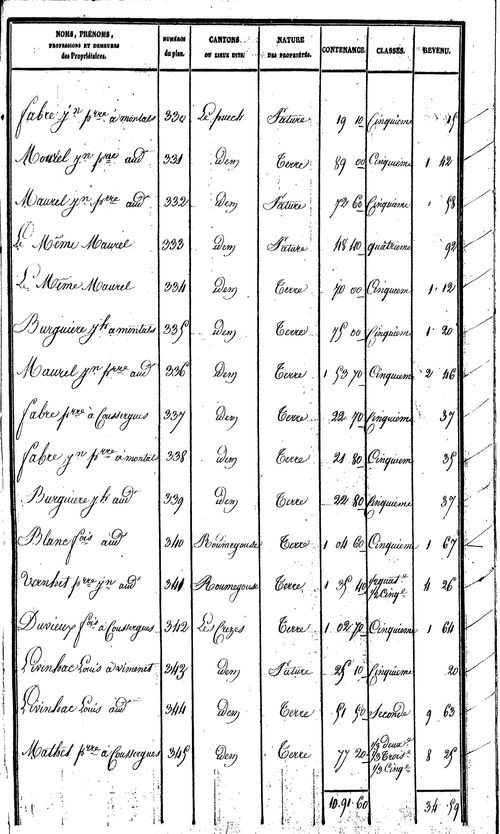 NOMS, PRÉNOMS, PROFESSIONS ET DEMEURES des Propriétaires. NUMÉROS du plan. CANTONS. OU LIEUX DITS. NATURE DES PROPRIÉTÉS. CONTENANCE. CLASSES. REVENU.
fabre jn pre à montals 330 Le puech Pature 19 10 Cinquieme 15
Maurel jn pre aud 331 idem Terre 89 00 Cinquieme 1 42
Maurel jn pre aud 332 idem Pature 72 60 Cinquieme 58
Le Même Maurel 333 idem Pature 48 40 quatrieme 92
Le Même Maurel 334 idem Terre 70 00 Cinquiem 1 12
Burguiere à montals 335 idem Terre 75 00 Cinquiem 1 20
Maurel jn pre aud 336 idem Terre 1 53 70 Cinquieme 2 46
fabre pre à Coussergues 337 idem Terre 22 70 Cinquieme 37
fabre jn pre à montals 338 idem Terre 21 80 Cinquiem 35
Burguiere aud 339 idem Terre 22 80 Cinquieme 37
Blanc fois aud 340 Roumegouse Terre 1 04 60 Cinquiem 1 67
Vernhet pre jn aud 341 Roumegouse Terre 1 35 40 1/2 Cinqe 4 26
Duvieux fois à Coussergues 342 Les Cazes Terre 1 02 70 Cinquieme 1 64
Levinhac Louis à vimenet 343 idem Pature 25 10 Cinquieme 20
Levinhac Louis aud 344 idem Terre 51 50 Seconde 9 63
Mathet pre à Coussergues 345 idem Terre 77 20 1/3 deuxe 1/3 Troise 1/3 Cinqe 8 25
10 91 60 34 59